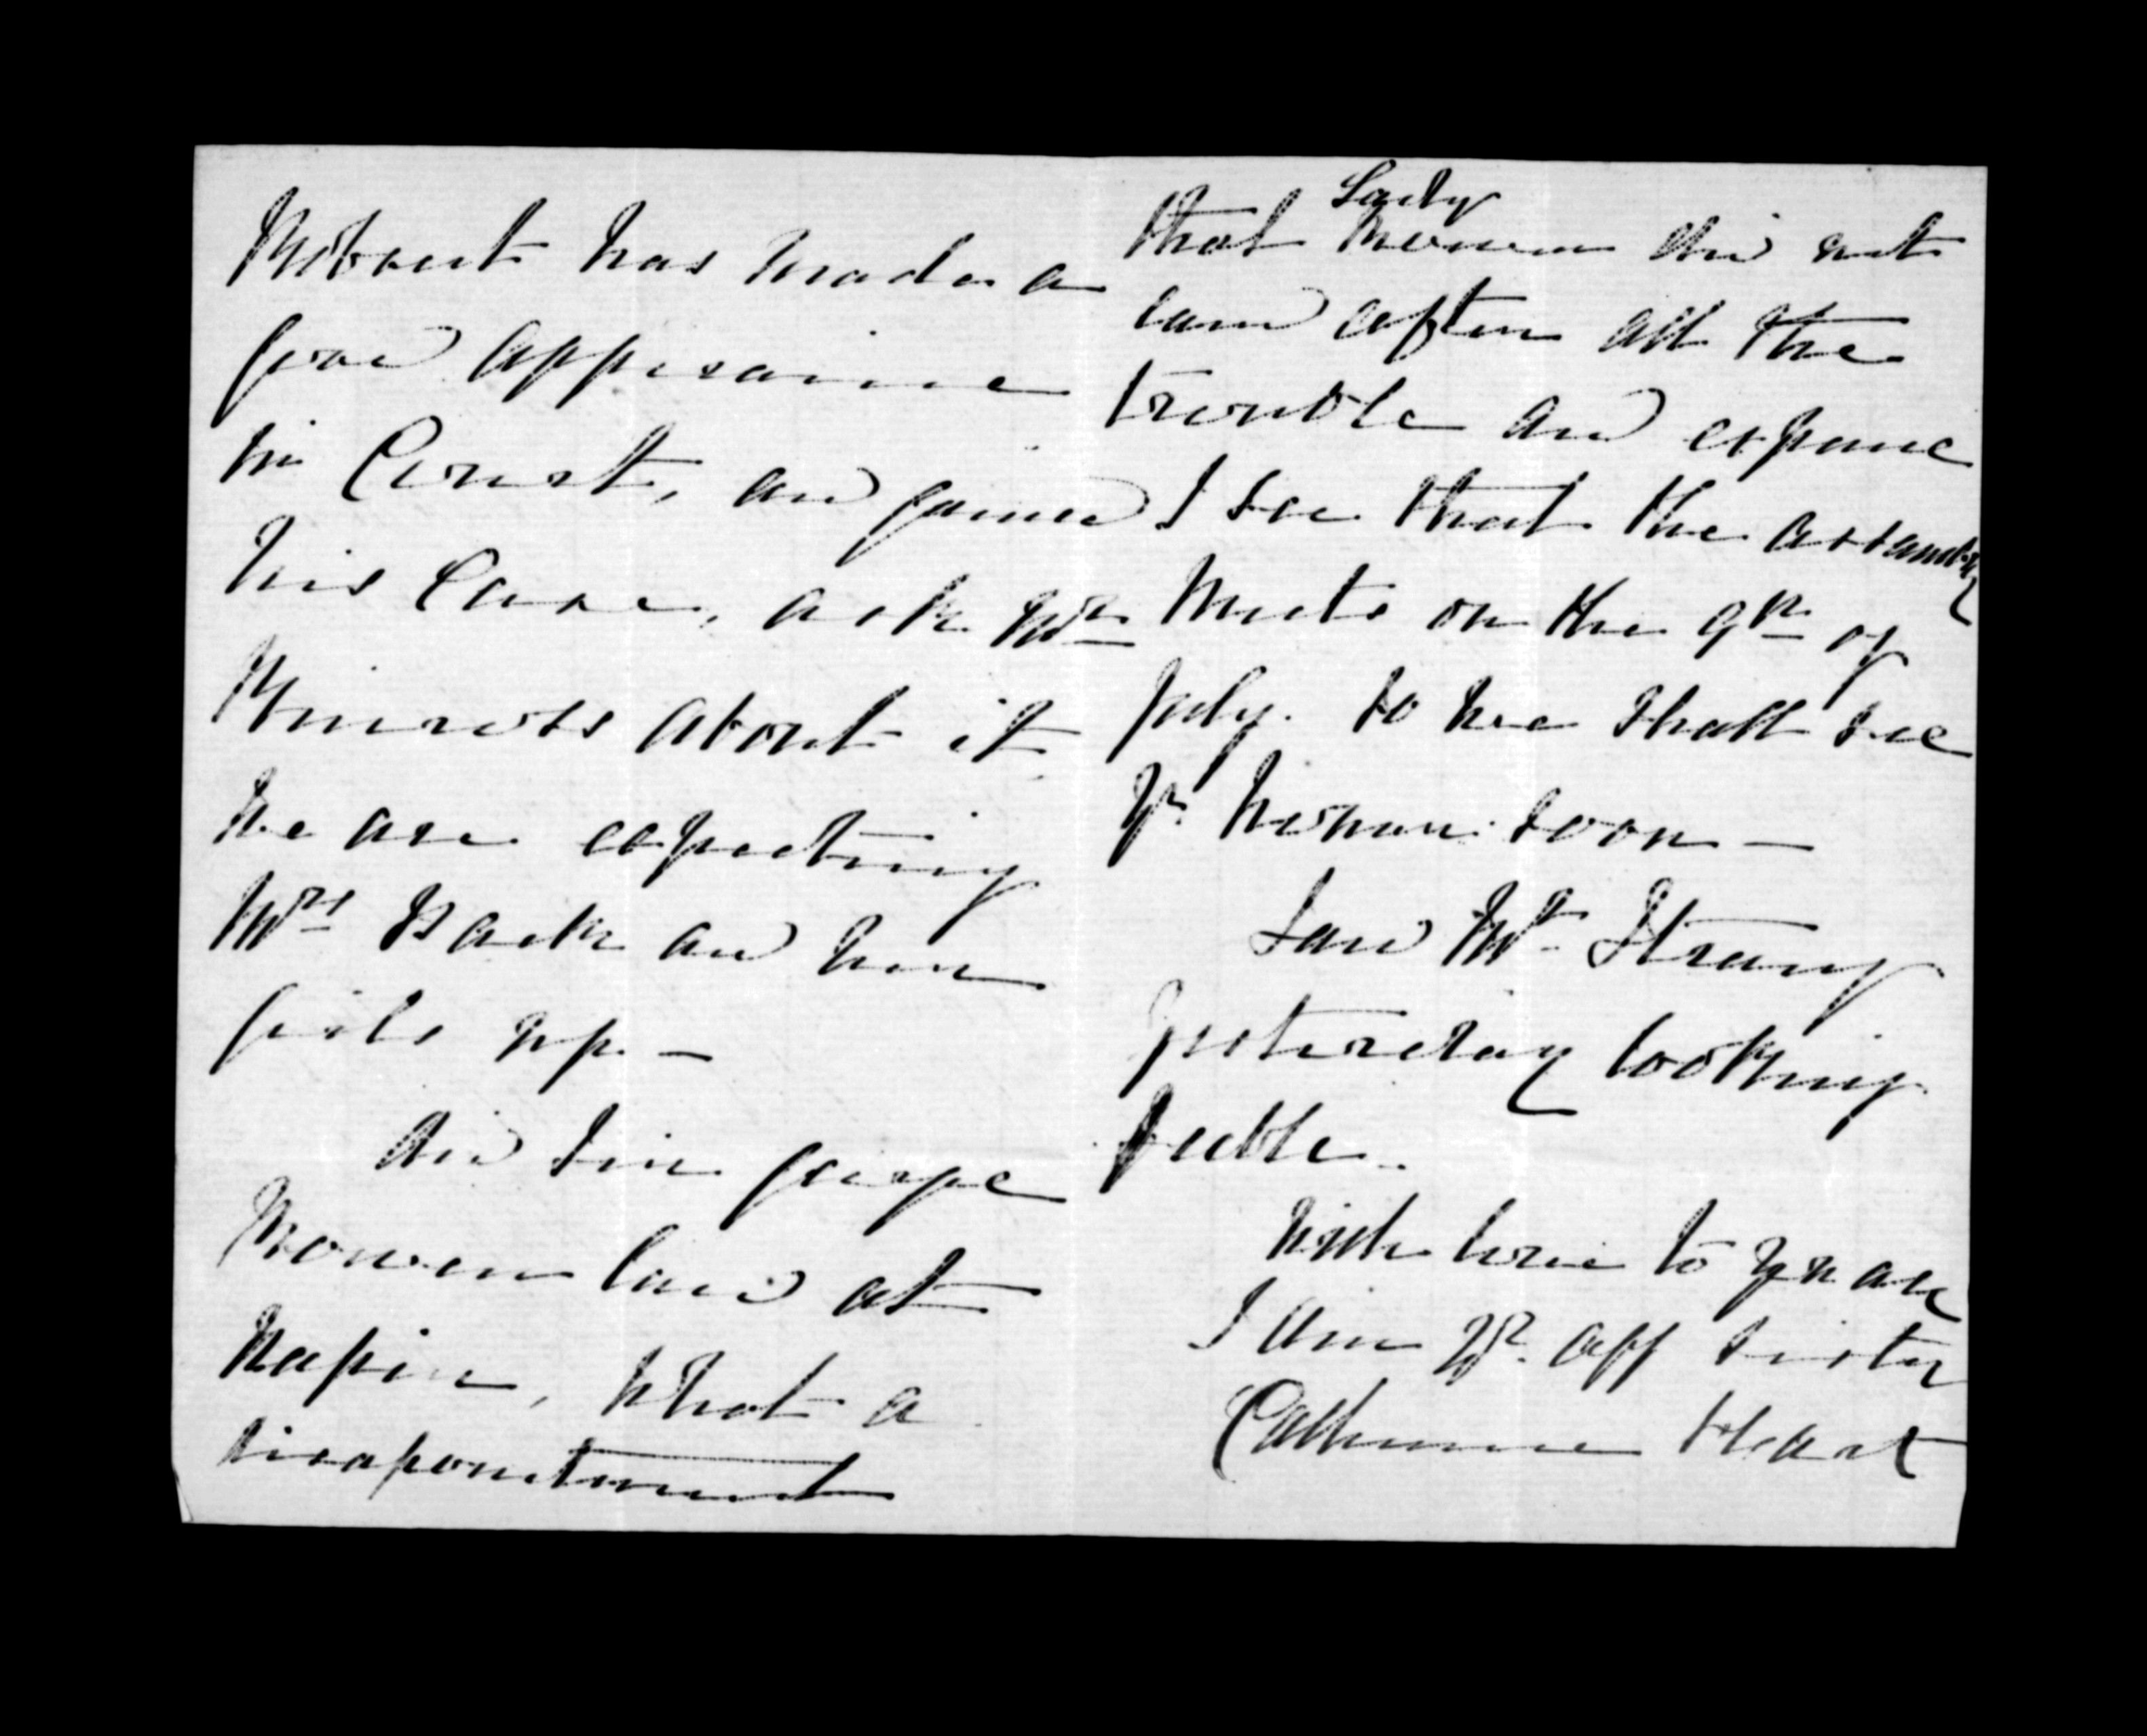 Robert has made a
good appearance
in Court, and gained
his Case, ask Mr
Kinross about it
We are expecting
Mrs Park and her
girls up —
Did Sir George
Bowen land at
Napier, what a
disapointment
that Lady Bowen did not
land after all the
trouble and expence
I see that the assembly
meets on the 9th of
July. so we shall see
yr. soon —
Saw Mr Strang
yesterday looking
feeble.
With love to you all
I am yr. aff sister
Catherine Hart